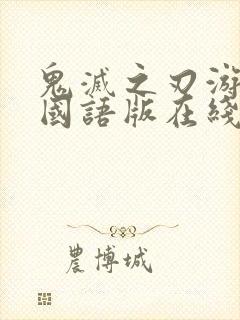 鬼滅之刃游
國語版在綫
農博城